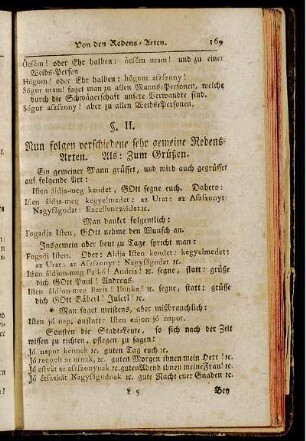 Von den Redens-Arten. 169
Öcsém! oder Ehe halben: öcsém uram! und zu einer
Weibs-Person
Húgom! oder Ehe halben: húgom aszszony!
Sógor uram! saget man zu allen Manns-Personen, welche
durch die Schwägerschaft unsere Verwandte sind.
Sógor aszszony! aber zu allen Weibs-Personen.
§. II.
Nun folgen verschiedene sehr gemeine Redens-
Arten. Als: Zum Grüßen.
Ein gemeiner Mann grüsset, und wird auch gegrüsset
auf folgende Art:
Isten áldja-meg kendet, GOtt segne euch. Dahero:
Isten áldja-meg kegyelmedet: az Urat: az Aszszonyt:
Nagyságodat: Excellentziádat ꝛc.
Man danket folgentlich:
Fogadja Isten, GOtt nehme den Wunsch an.
Insgemein aber heut zu Tage spricht man:
Fogadj Isten. Oder: Aldja Isten kendet: kegyelmedet:
az Urat: az Aszszonyt: Nagyságodat ꝛc.
Isten áldjon-meg Palkó! Andris! ꝛc. segne, statt: grüße
dich GOtt Paul! Andreas!
Isten áldjon-meg Panis! Ilonka! ꝛc. segne, statt: grüße
dich GOtt Bábel! Julerl! ꝛc.
* Man saget meistens, aber mißbrauchlich:
Isten jó nap, anstatt: Isten adjon jó napot.
Sonsten die Stadt-Leute, so sich nach der Zeit
wissen zu richten, pflegen zu sagen:
Jó napot kennek ꝛc. guten Tag euch ꝛc.
Jó reggelt az úrnak, ꝛc. guten Morgen ihnen mein Herr! ꝛc.
Jó estvét az aszszonynak ꝛc. guten Abend ihnen meine Frau! ꝛc.
Jó éjtszakát Nagyságodnak ꝛc. gute Nacht euer Gnaden ꝛc.
L 5 Bey